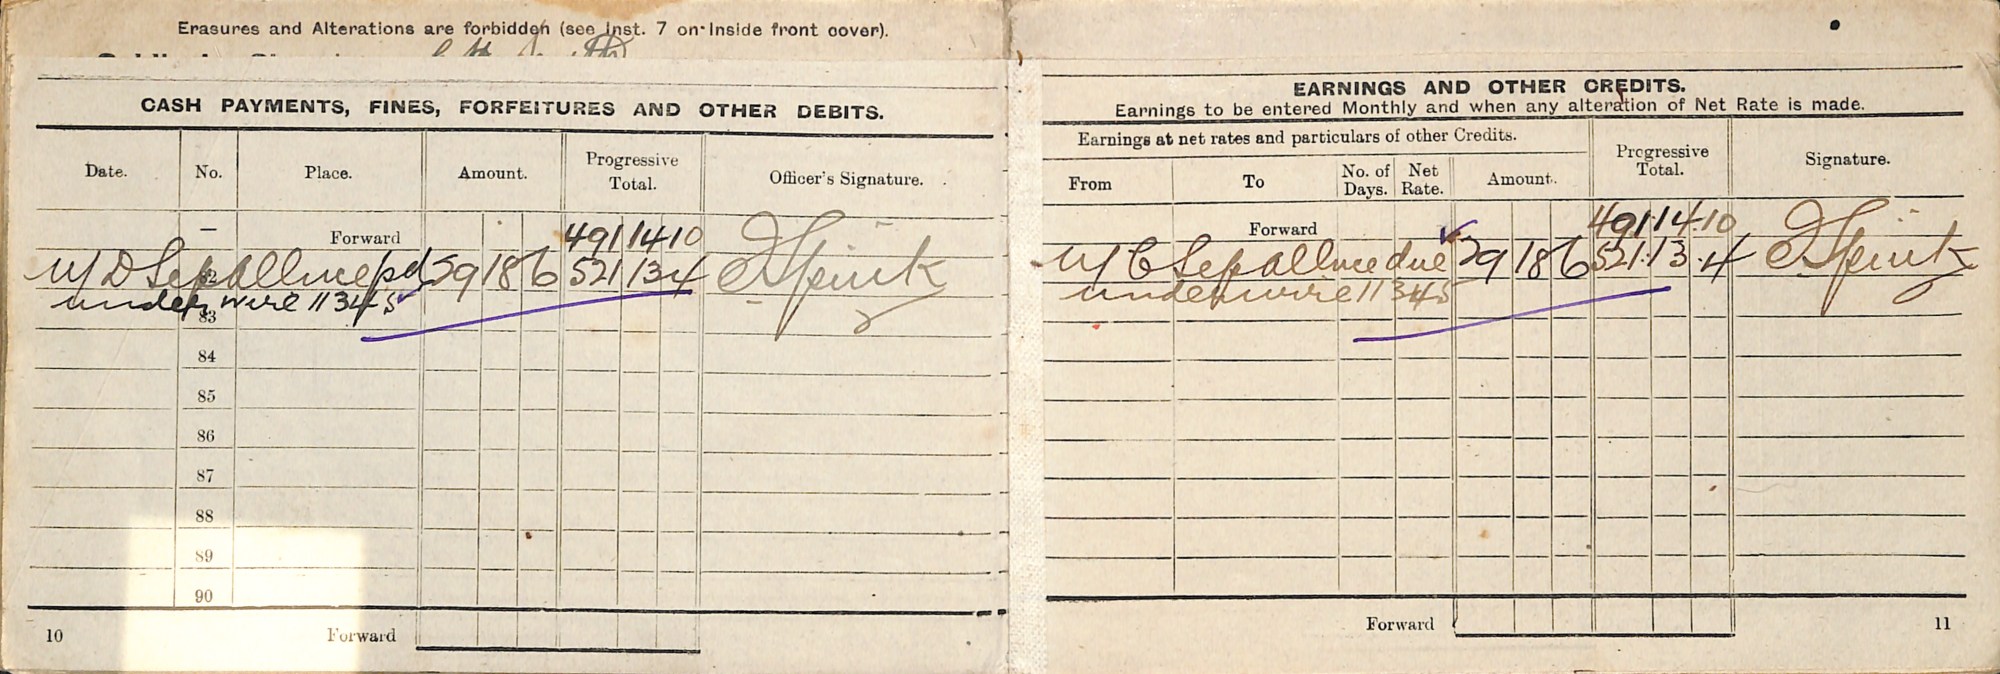 Erasures and Alterations are forbidden (see Inst. 7 on Inside front cover).
CASH PAYMENTS, FINES, FORFEITURES AND OTHER DEBITS.
Date. No. Place. Amount. Progressive Total. Officer's Signature.
— Forward 491 14 10
W/D Sep allnce pd 29 18 6 521 13 4 Spink
under wire 11345
83
84
85
86
87
88
89
90
10 Forward
EARNINGS AND OTHER CREDITS.
Earnings to be entered Monthly and when any alteration of Net Rate is made.
Earnings at net rates and particulars of other Credits. Progressive Total. Signature.
From To No. of Days. Net Rate. Amount.
Forward 491.14.10
W/C Sep allnce due 29 18 6 521.13.4 Spink
under wire 11345
Forward 11